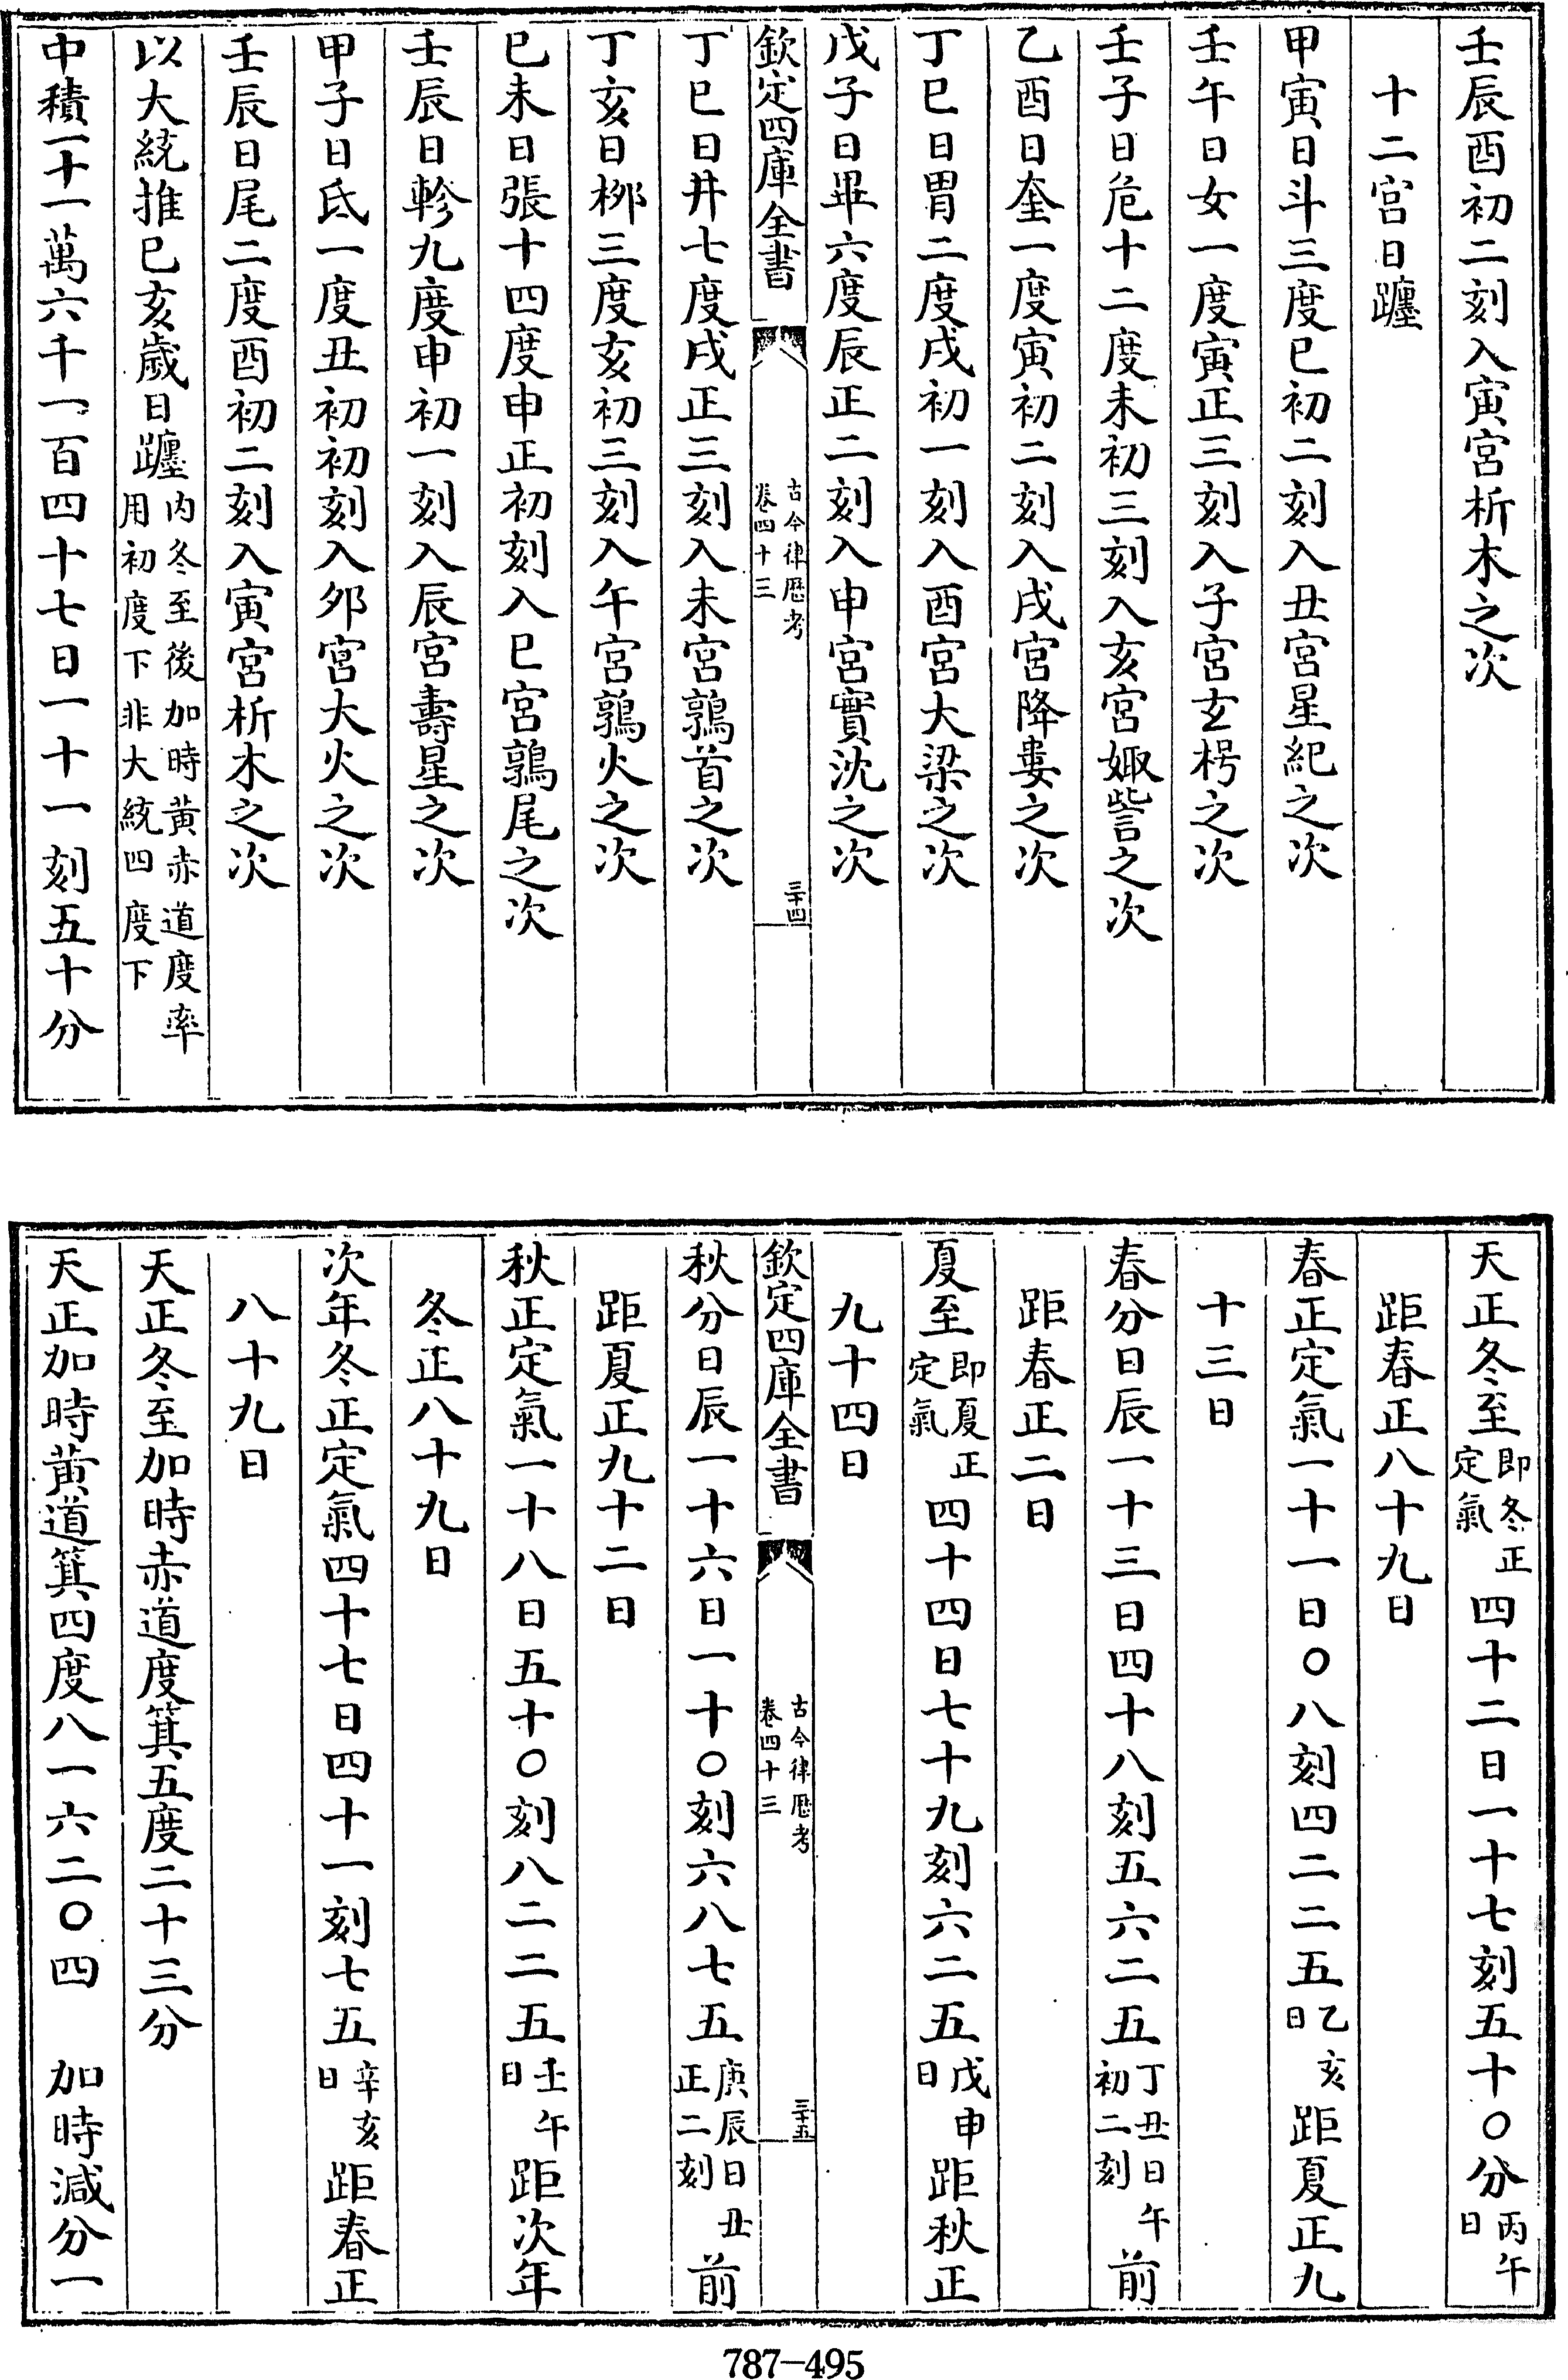 壬辰酉初二刻入寅宮析木之次
十二宮日躔
甲寅日斗三度巳初二刻入丑宮星紀之次
壬午日女一度寅正三刻入子宮玄枵之次
壬子日危十二度未初三刻入亥宮娵訾之次
乙酉日奎一度寅初二刻入戌宮降婁之次
丁巳日胃二度戌初一刻入酉宮大梁之次
戊子日畢六度辰正二刻入申宮實沈之次
欽定四庫全書
古今律厯考
卷四十三
三十四
丁巳日井七度戌正三刻入未宮鶉首之次
丁亥日栁三度亥初三刻入午宮鶉火之次
巳未日張十四度申正初刻入巳宮鶉尾之次
壬辰日軫九度申初一刻入辰宮壽星之次
甲子日氐一度丑初初刻入夘宮大火之次
壬辰日尾二度酉初二刻入寅宮析木之次
以大統推巳亥歲日躔內冬至後加時黄赤道度率
用初度下非大統四度下
中積一十一萬六千一百四十七日一十一刻五十分
天正冬至即冬正
定氣四十二日一十七刻五十〇分丙午
日
距春正八十九日
春正定氣一十一日〇八刻四二二五乙亥
日距夏正九
十三日
春分日辰一十三日四十八刻五六二五丁丑日午
初二刻前
距春正二日
夏至即夏正
定氣四十四日七十九刻六二五戊申
日距秋正
九十四日
欽定四庫全書
古今律厯考
卷四十三
三十五
秋分日辰一十六日一十〇刻六八七五庚辰日丑
正二刻前
距夏正九十二日
秋正定氣一十八日五十〇刻八二二五壬午
日距次年
冬正八十九日
次年冬正定氣四十七日四十一刻七五辛亥
日距春正
八十九日
天正冬至加時赤道度箕五度二十三分
天正加時黄道箕四度八一六二〇四 加時減分一
787-495